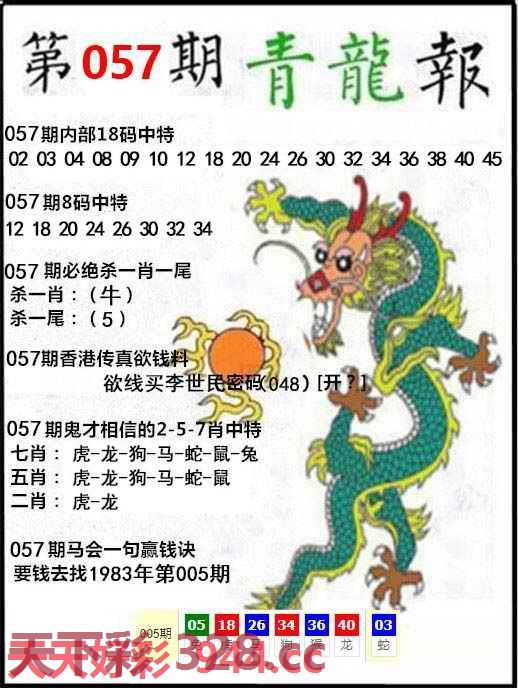 第057期青龍報
057期内部18码中特
02 03 04 08 09 10 12 18 20 24 26 30 32 34 36 38 40 45
057期8码中特
12 18 20 24 26 30 32 34
057期必绝杀一肖一尾
杀一肖：（牛）
杀一尾：（5）
057期香港传真欲钱料
欲线买李世民密码(048) [开？]
057期鬼才相信的2-5-7肖中特
七肖：虎-龙-狗-马-蛇-鼠-兔
五肖：虎-龙-狗-马-蛇-鼠
二肖：虎-龙
057期马会一句赢钱诀
要钱去找1983年第005期
005期 05 18 26 34 36 40 03
马 狗 猴 龙 蛇
天天好彩 .cc